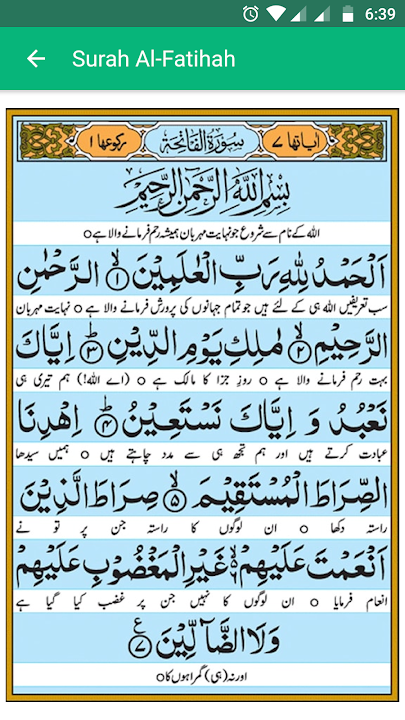 6:39
Surah Al-Fatihah
اٰیاتھا ۷ سُوْرَةُ الْفَاتِحَة رکوعھا ۱
بِسْمِ اللّٰهِ الرَّحْمٰنِ الرَّحِیْمِ
اللہ کے نام سے شروع جو نہایت مہربان ہمیشہ رحم فرمانے والا ہے o
اَلْحَمْدُ لِلّٰهِ رَبِّ الْعٰلَمِیْنَ ۙ﴿۱﴾ الرَّحْمٰنِ
سب تعریفیں اللہ ہی کے لئے ہیں جو تمام جہانوں کی پرورش فرمانے والا ہے o نہایت مہربان
الرَّحِیْمِ ۙ﴿۲﴾ مٰلِكِ یَوْمِ الدِّیْنِ ؕ﴿۳﴾ اِیَّاكَ
بہت رحم فرمانے والا ہے o روزِ جزا کا مالک ہے o (اے اللہ!) ہم تیری ہی
نَعْبُدُ وَ اِیَّاكَ نَسْتَعِیْنُ ؕ﴿۴﴾ اِهْدِنَا
عبادت کرتے ہیں اور ہم تجھ ہی سے مدد چاہتے ہیں o ہمیں سیدھا
الصِّرَاطَ الْمُسْتَقِیْمَ ۙ﴿۵﴾ صِرَاطَ الَّذِیْنَ
راستہ دکھا o ان لوگوں کا راستہ جن پر تو نے
اَنْعَمْتَ عَلَیْهِمْ ۙ۬﴿۶﴾ غَیْرِ الْمَغْضُوْبِ عَلَیْهِمْ
انعام فرمایا o ان لوگوں کا نہیں جن پر غضب کیا گیا ہے
وَلَا الضَّآلِّیْنَ ﴿۷﴾ ع
اور نہ (ہی) گمراہوں کا o